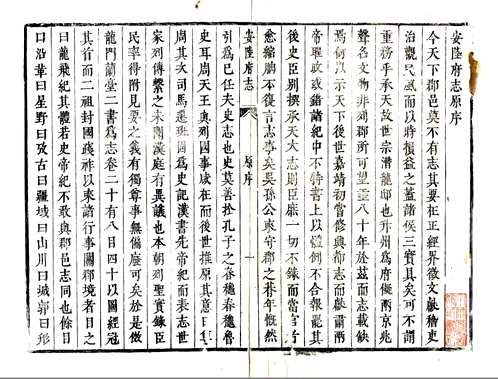 安陸府志原序
今天下郡邑莫不有志其要在正經界徵文獻稽吏
治觀民風而以時損益之蓋諸侯三寶具矣可不謂
重務乎承天故世宗潛龍邸也升州為府儼兩京兆
聲名文物非列郡所可望八十年於茲而志載缺
焉何以示天下後世嘉靖初嘗修興都志而獻肅兩
帝聖政或錯諸紀中不特書上以體例不合報罷其
後史臣別撰承天大志則臣一切不錄而當官者
愈縮朒不復言志事矣吳孫公來守郡之朞年慨然
安陸府志 原序 一
引為已任夫史志也史莫善於孔子之春穐春穐魯
史耳周天王與列國事咸在而後世推原其意曰
周其文司馬遷班固為史記漢書先帝紀而表志世
家列傳繫之未聞漢庭有異議也本朝列聖實錄臣
民率得附見要之我有獨尊事無偏廢可矣於是徵
龍門蘭臺二書為志卷二十有八目四十以圖經冠
其首而二祖封國踐祚以來諸行事關郡境者目之
曰龍飛紀其體若史帝紀不敢與郡邑志同也餘目
曰沿革曰星野曰攷古曰疆域曰山川曰城郭曰形